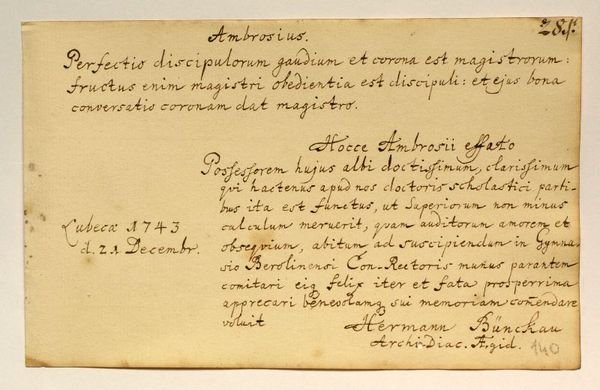 Ambrosius.
285.
Perfectio discipulorum gaudium et corona est magistrorum:
fructus enim magistri obedientia est discipuli: et ejus bona
conversatio coronam dat magistro.
Hocce Ambrosii effato
Possessorem hujus albi doctissimum, clarissimum
qvi hactenus apud nos doctoris scholastici parti-
bus ita est functus, ut Superiorum non minus
calculum meruerit, qvam auditorum amorem et
obseqvium, abitum ad suscipiendum in Gymna-
sio Berolinensi Con-Rectoris munus parantem
comitari eiq felix iter et fata prosperrima
apprecari benevolamq sui memoriam com̄endare
voluit
Lubecæ 1743
d. 21 Decembr.
Hermann Bünckau
Archi-Diac. Ægid.
140